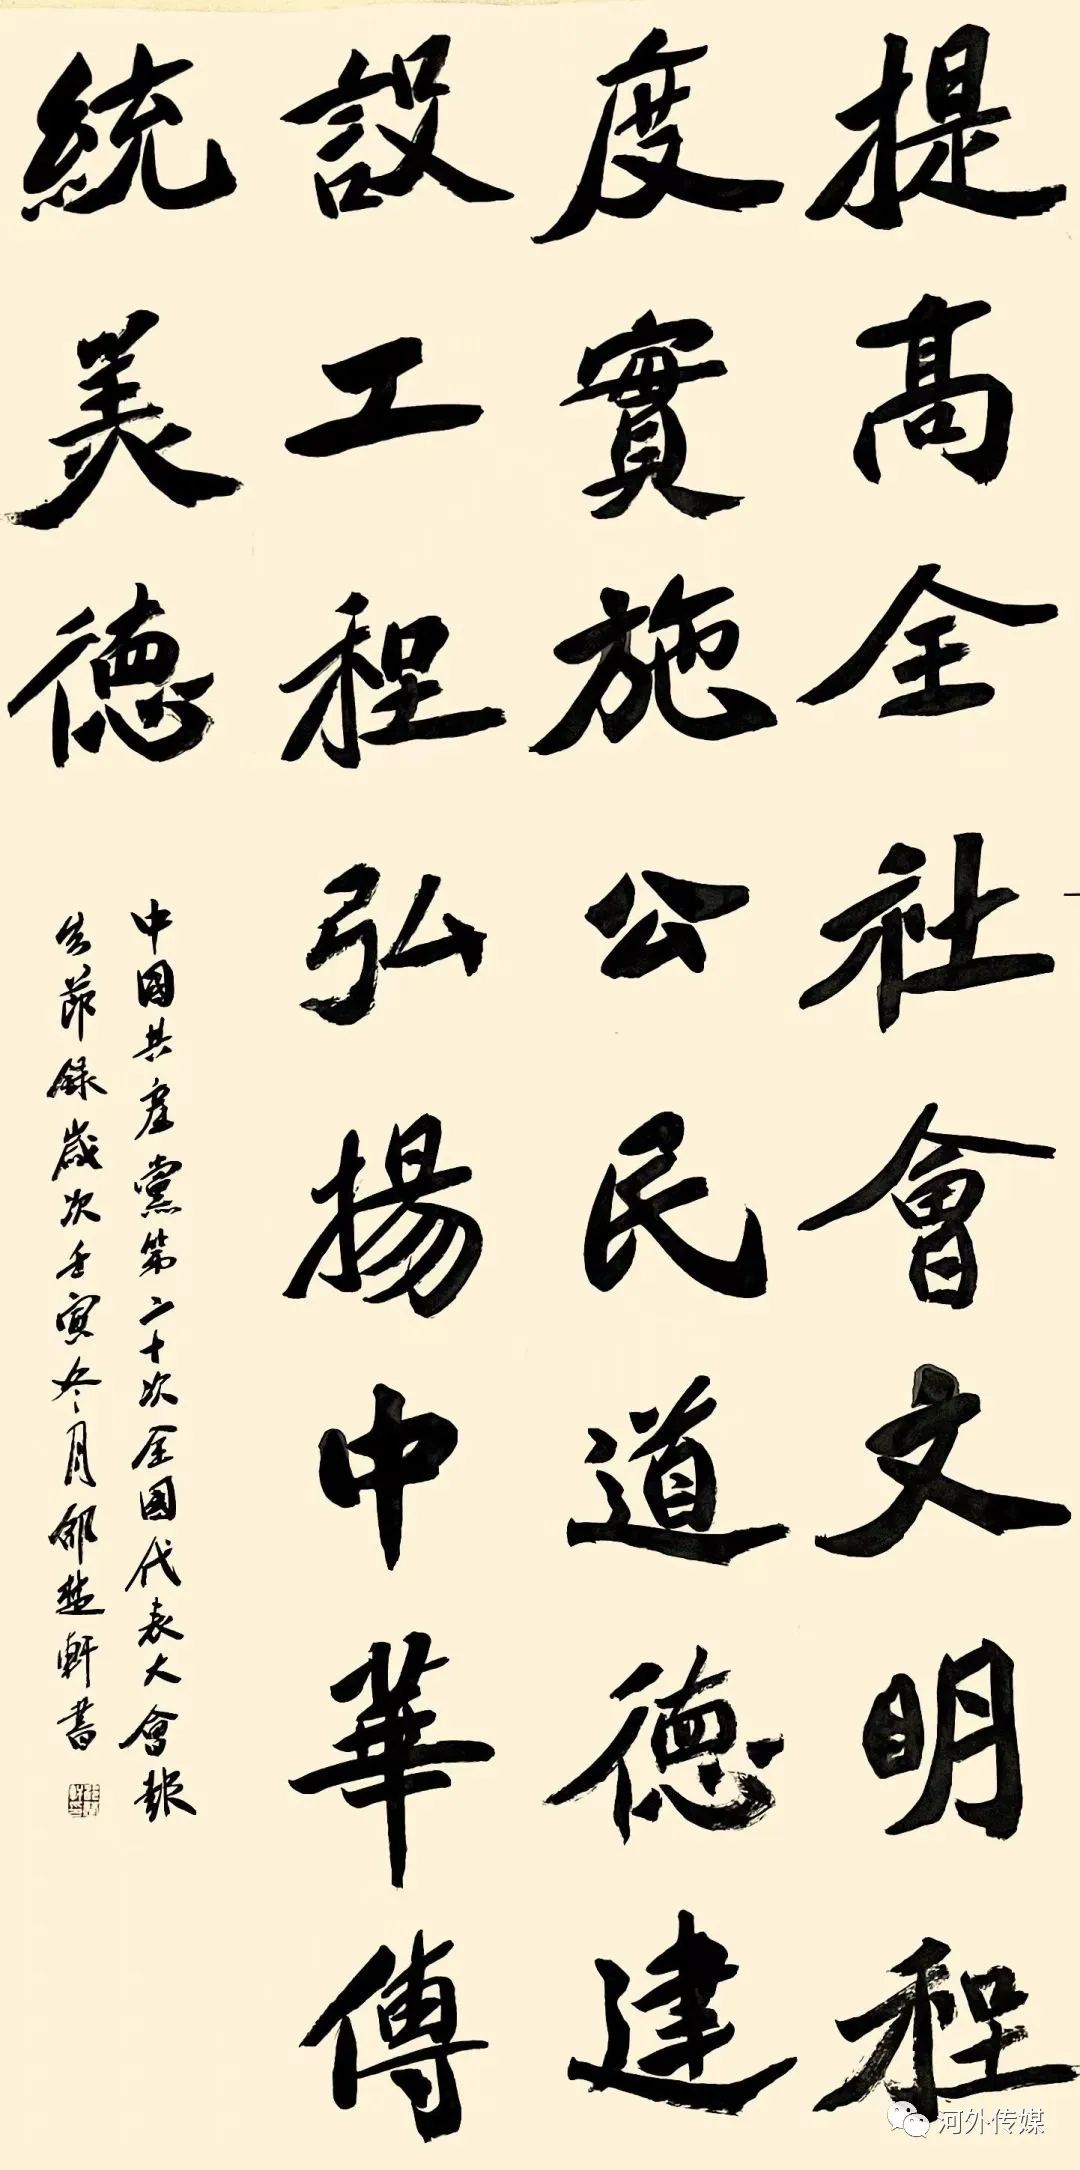 提高全社會文明程
度實施公民道德建
設工程弘揚中華傳
統美德
中國共産黨第二十次全國代表大會報
告節錄歲次壬寅冬月邰楚軒書
河外传媒